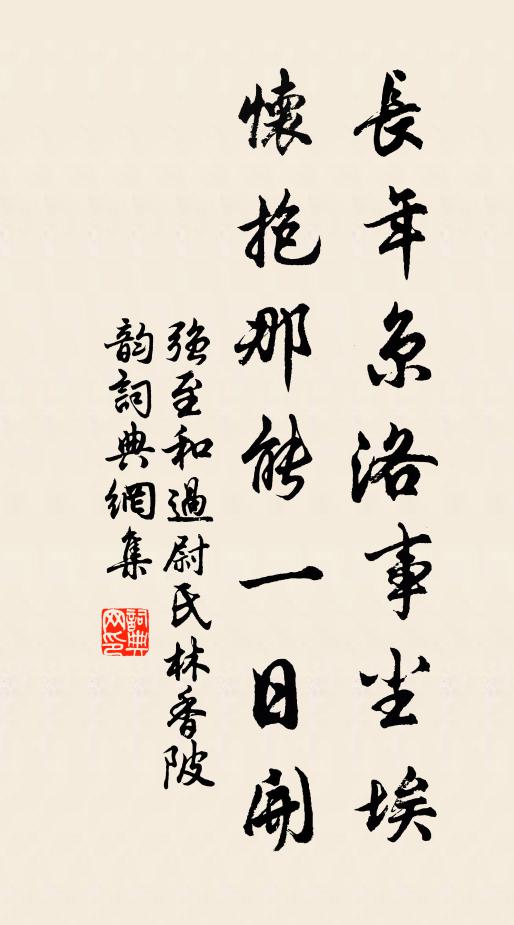 長年京洛事尘埃
懷抱那能一日開
強至和過尉氏林香陂
韵詞典網集
詞典网印